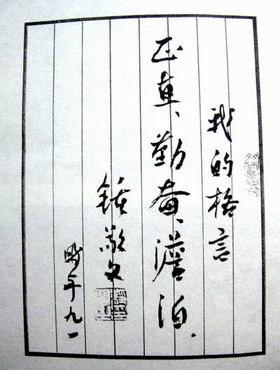 我的格言
正直、勤奋、澹泊.
鍾敬文
时年九一